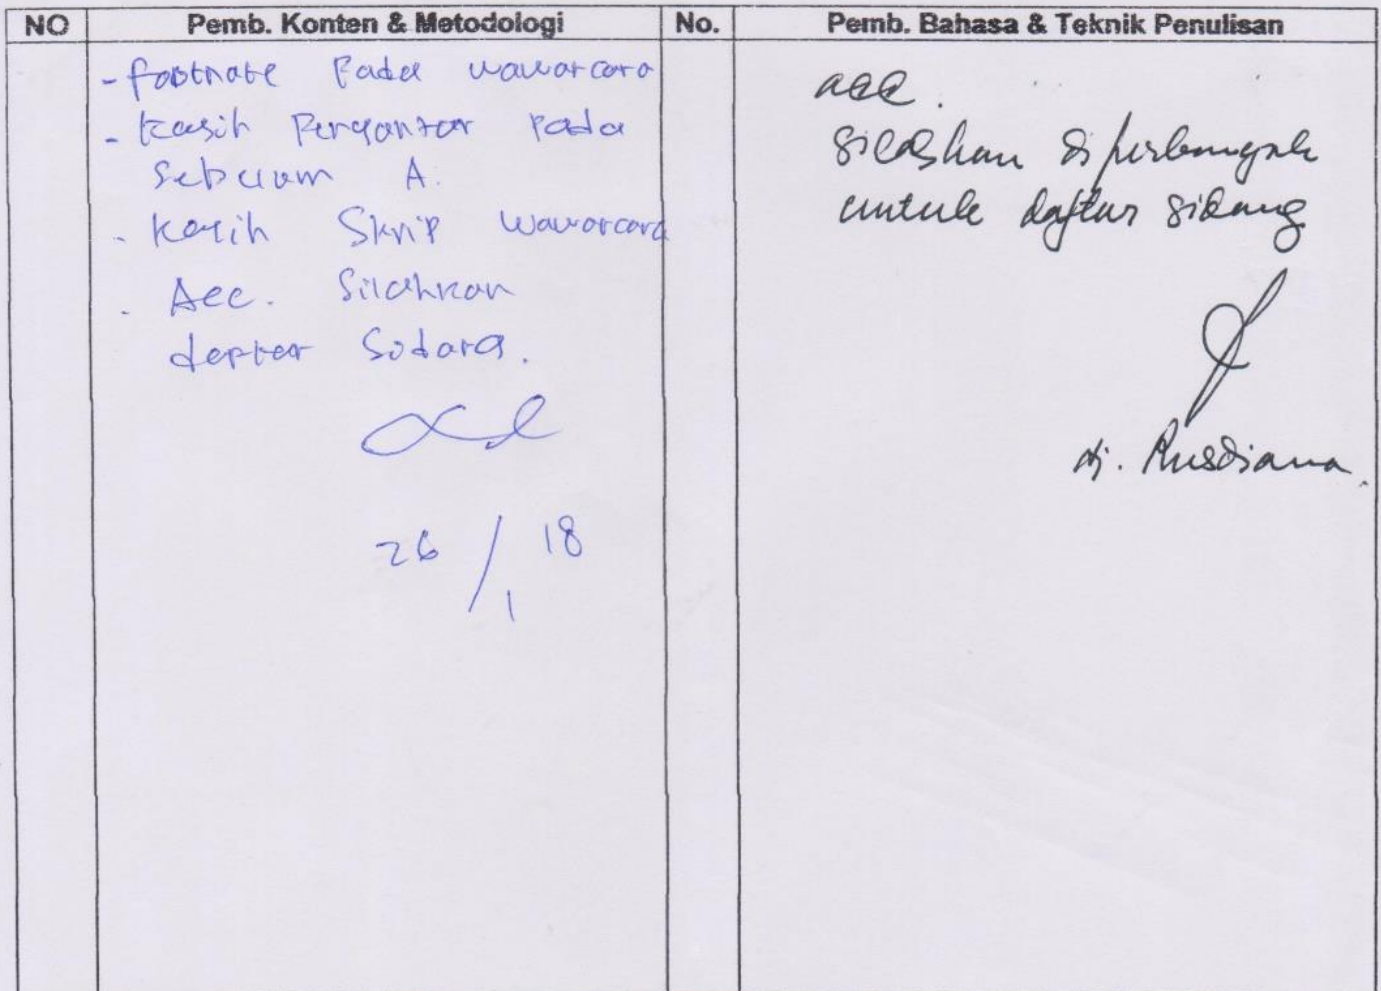 NO
Pemb. Konten & Metodologi
No.
Pemb. Bahasa & Teknik Penulisan
- footnote Pada wawancara
- Kasih Pengantar Pada
Sebelum A.
- Kasih Skrip wawancara
- Acc. Silahkan
daftar
26/1 18
acc.
silahkan diperbanyak
untuk daftar sidang
Rusdiana